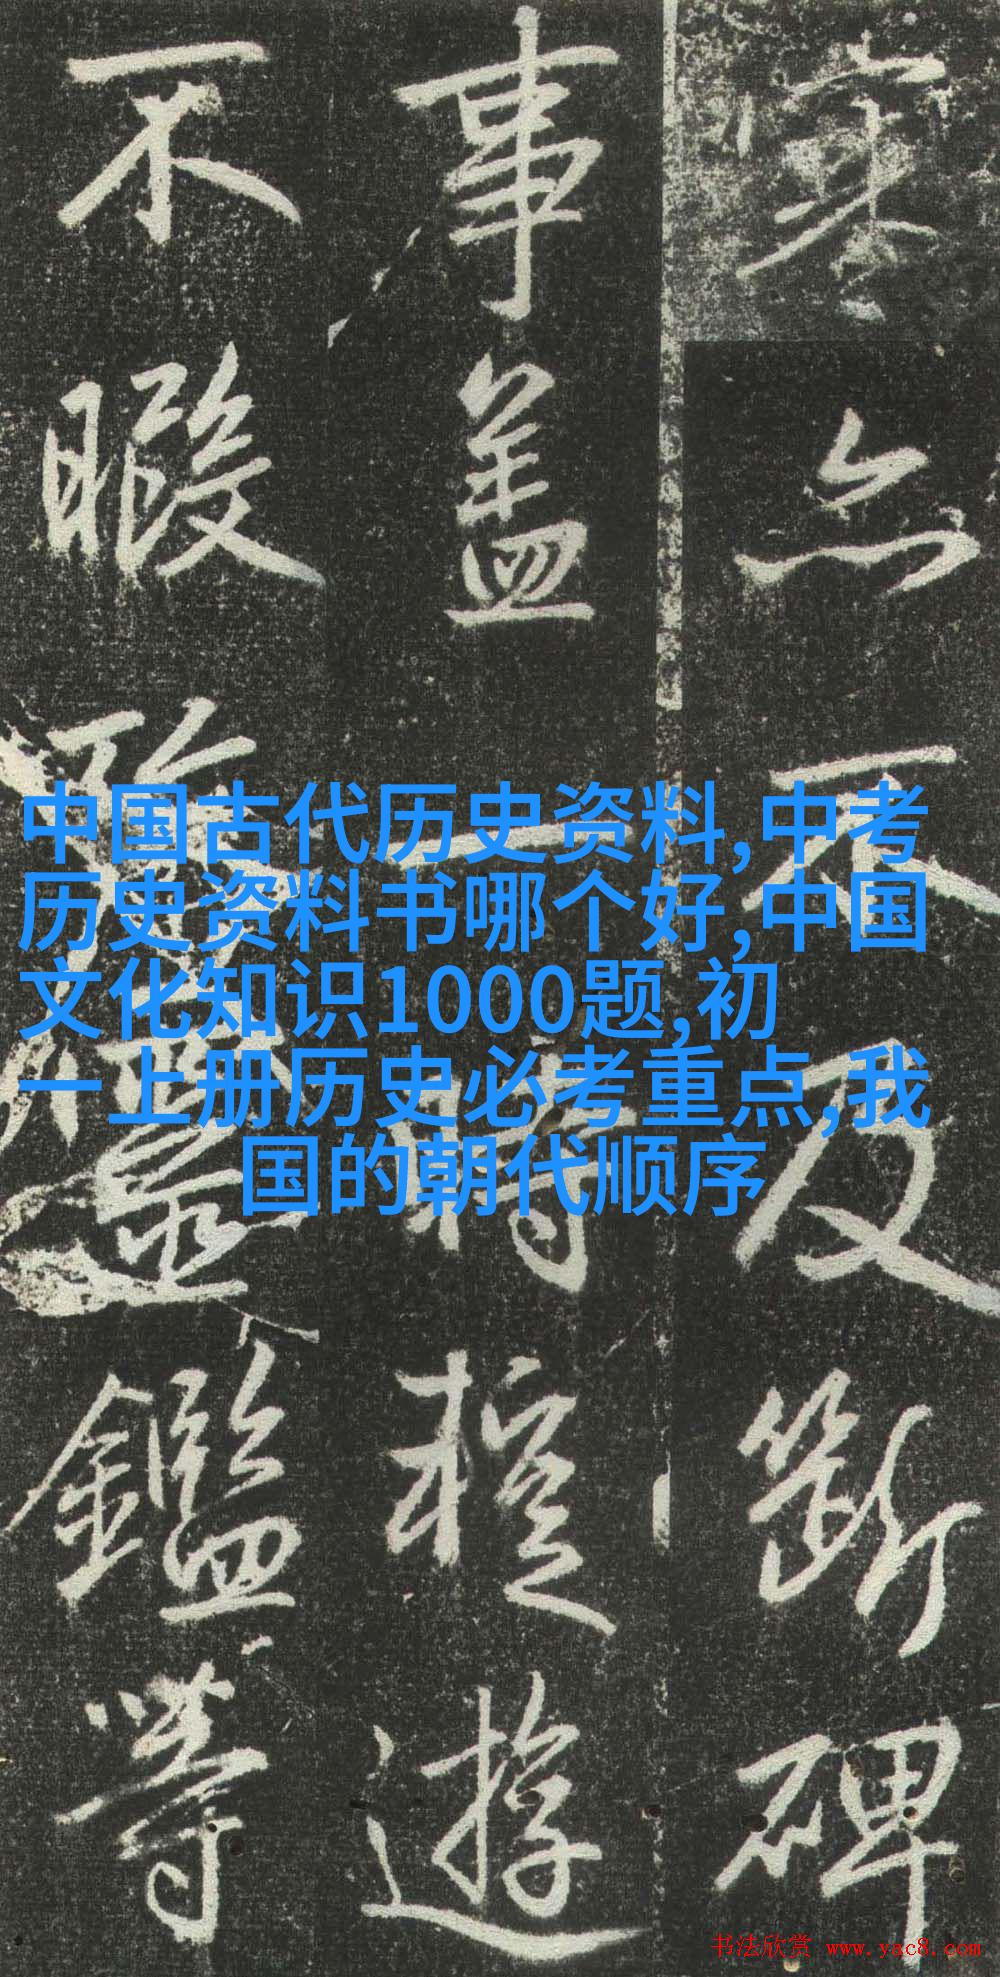 亦不及斷碑
事盖一時遊
不暇鑑等
中国古代历史资料,中考
历史资料书哪个好,中国
文化知识1000题,初
一上册历史必考重点,我
国的朝代顺序
书法欣赏 www.yac8.com